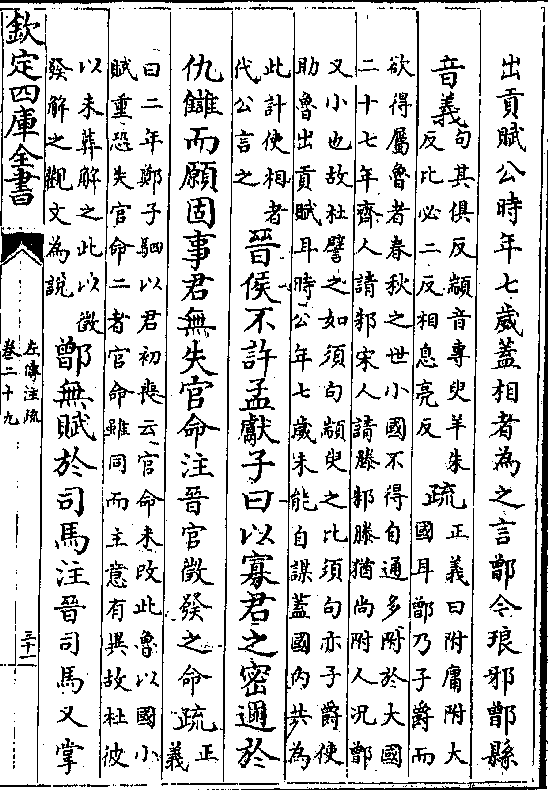 出貢賦公時年七歲蓋相者為之言鄫今琅邪鄫縣
音義
句其俱反顓音專臾羊朱
反比必二反相息亮反
疏
正義曰附庸附大
國耳鄫乃子爵而
欲得屬魯者春秋之世小國不得自通多附於大國
二十七年齊人請邾宋人請滕邾滕猶尚附人況鄫
又小也故杜譬之如須句顓臾之比須句亦子爵使
助魯出貢賦耳時公年七歲未能自謀蓋國內共為
此計使相者
代公言之
晉侯不許孟獻子曰以寡君之密邇於
仇讎而願固事君無失官命注晉官徵發之命疏
正
義
曰二年鄭子駟以君初喪云官命未改此魯以國小
賦重恐失官命二者官命雖同而主意有異故杜彼
以未葬解之此以徵
發解之觀文為說
鄫無賦於司馬注晉司馬又掌
欽定四庫全書
左傳注疏
卷二十九
三十一